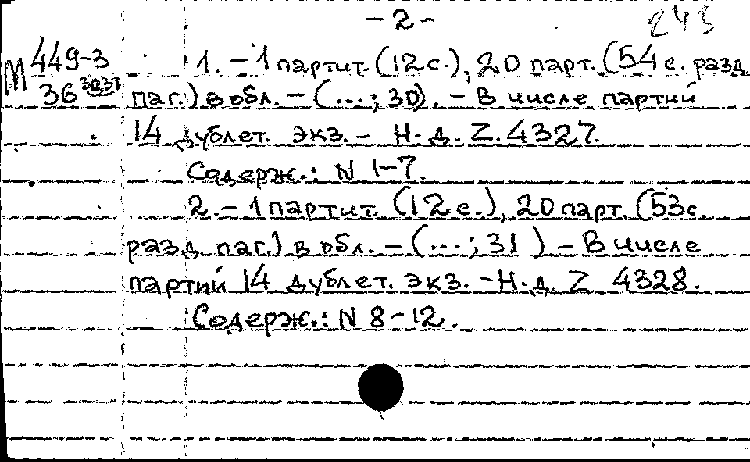 - 2 -
243
М 449-3
36
1. - 1 партит. (12 с.), 20 парт. (54 с. разд.
паг.) в обл. - (...; 30). - В числе партий
14 дублет. экз. - Н. д. Z. 4327.
Содерж.: N 1-7.
2. - 1 партит. (12 с.), 20 парт. (53 с.
разд. паг.) в обл. - (...; 31) - В числе
партий 14 дублет. экз. - Н. д. Z 4328.
Содерж.: N 8-12.